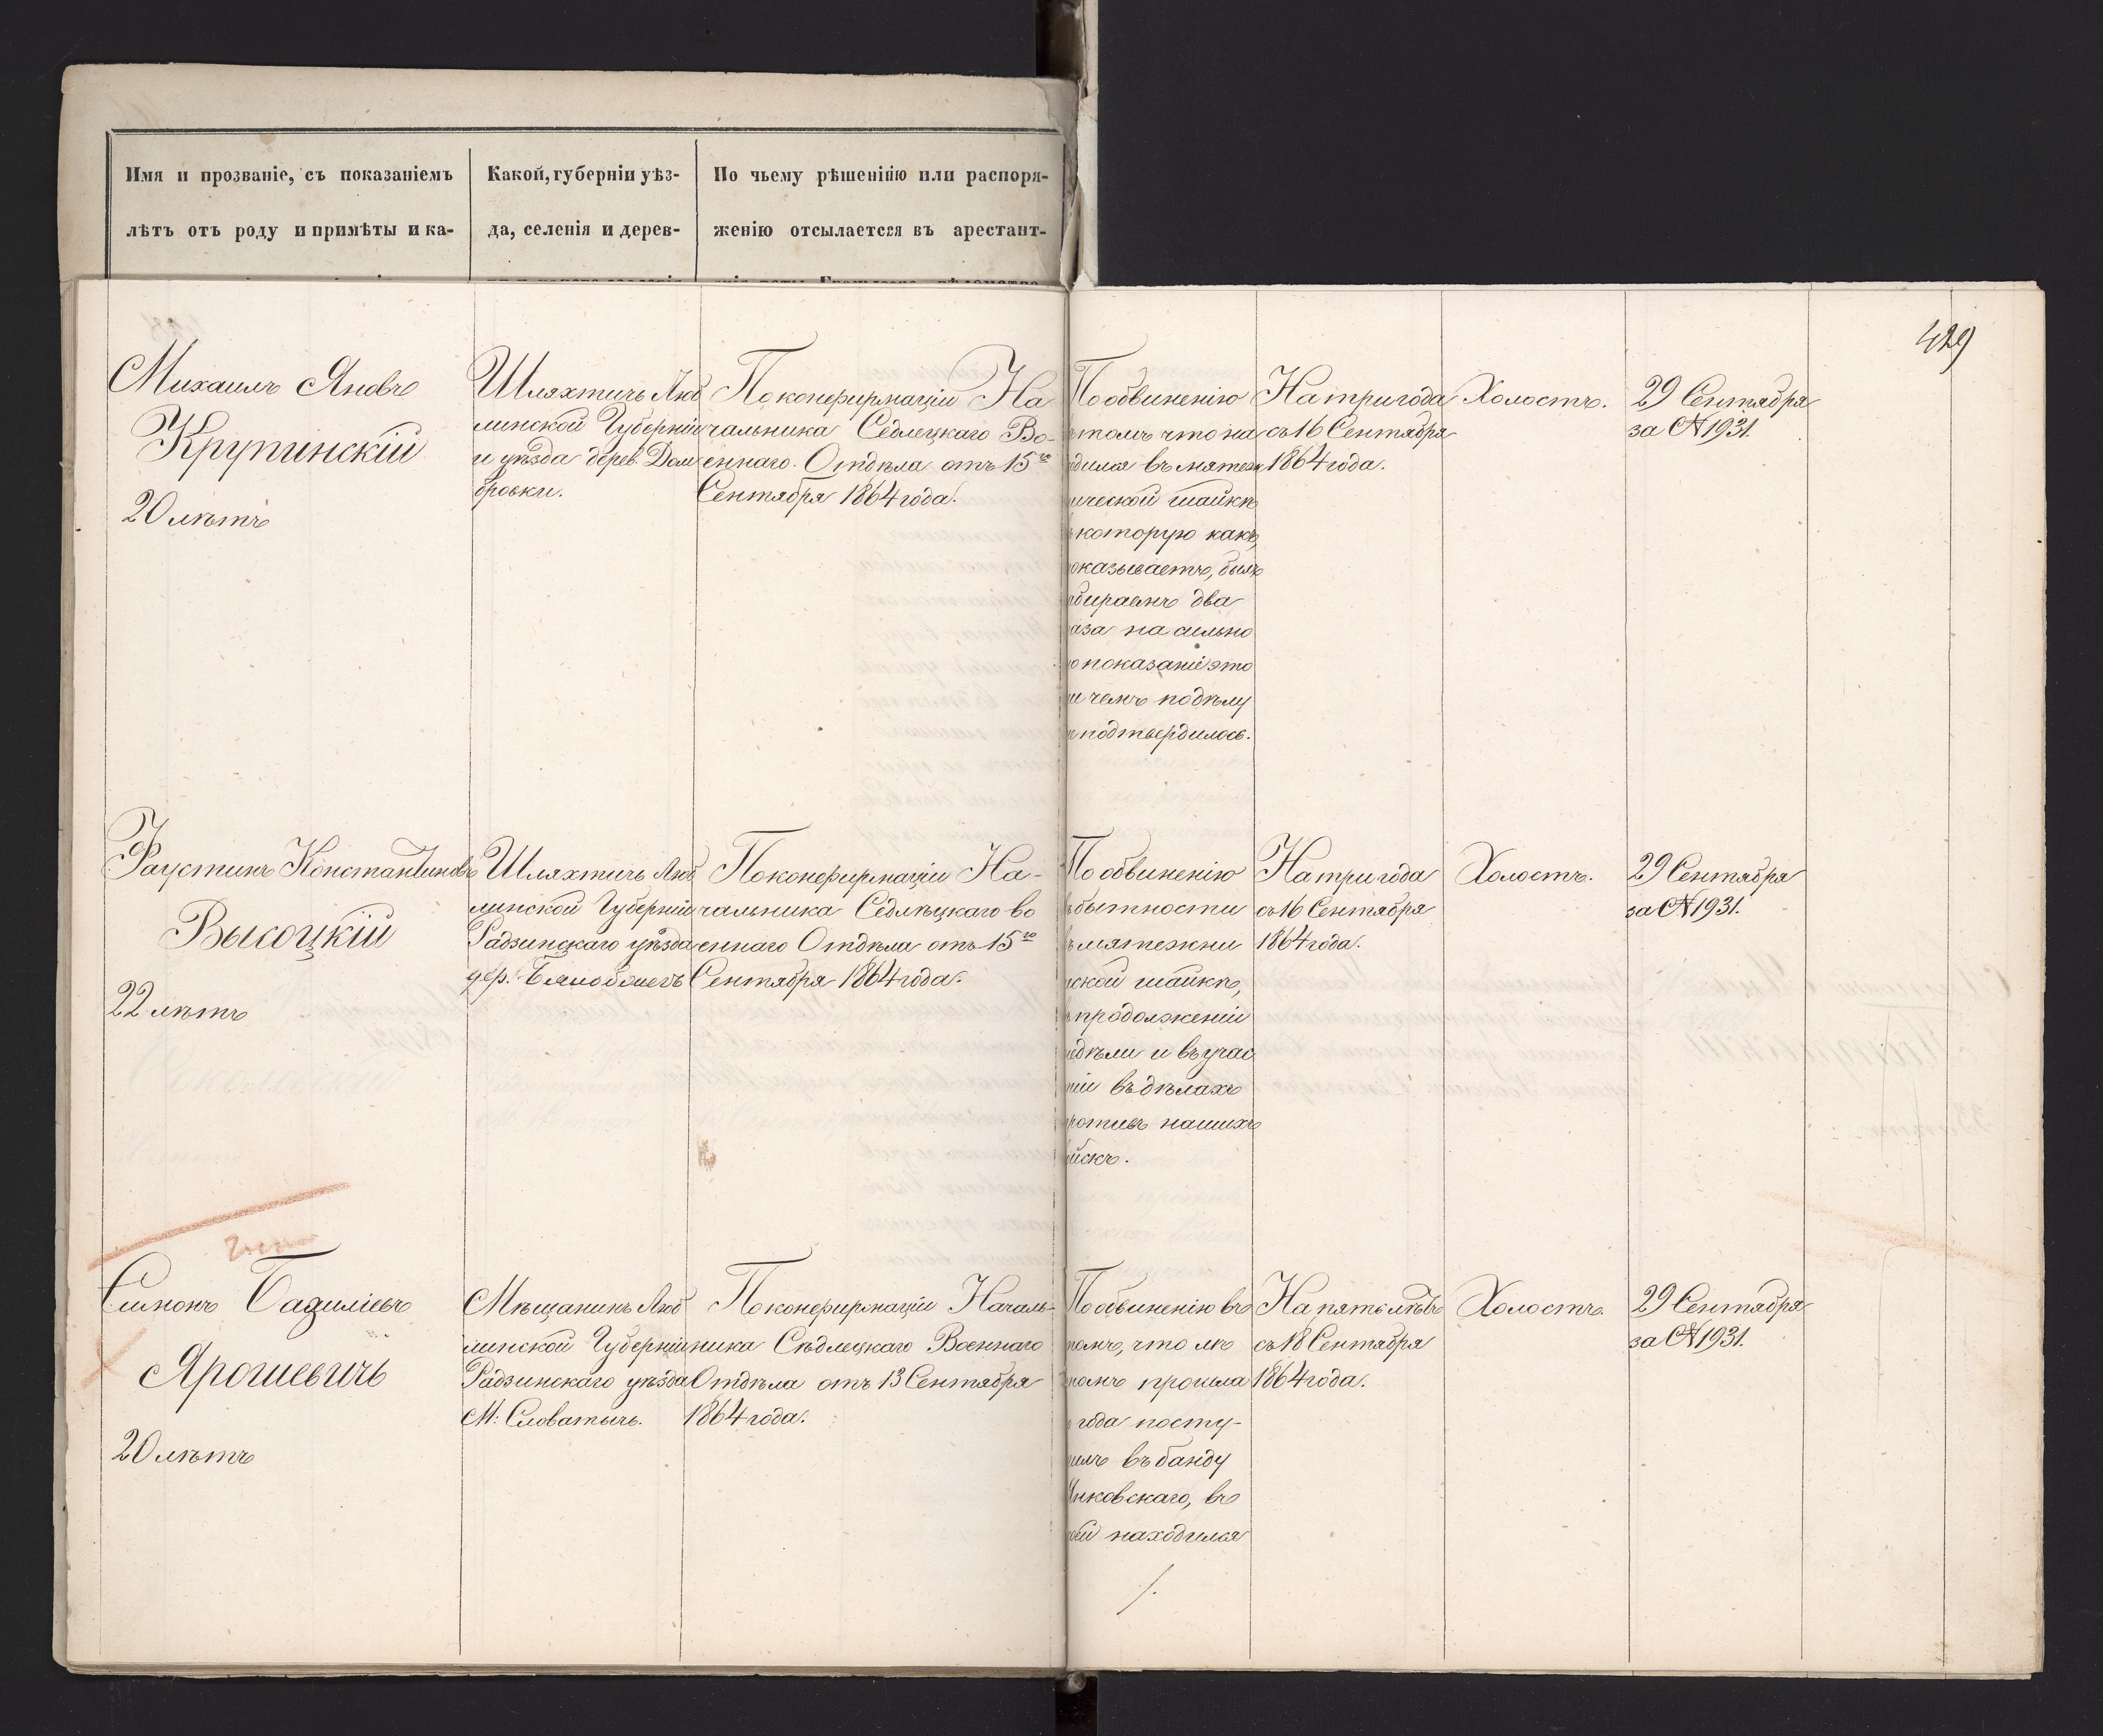 Имя и прозваніе, съ показаніемъ
лѣтъ отъ роду и примѣты и ка-
Какой, губерніи уѣз-
да, селенія и дерев-
По чьему рѣшенію или распоря-
женію отсылается въ арестант-
429
Михаилъ Яновъ
Крупинскій
20 лѣтъ
Шляхтичъ Люб
линской Губерніи
и уѣзда дерев. Дом
бровки.
По конфирмаціи На
чальника Седлецкаго Во-
еннаго Отдѣла отъ 15го
Сентября 1864 года.
По обвиненію
томъ что на
дился въ мятеж
ической шайкѣ
которую какъ,
оказываетъ, былъ
бираемъ два
аза насильно
о показаніе это
и чемъ по дѣлу
е подтвердилось.
На три года
съ 16 Сентября
1864 года.
Холостъ.
29 Сентября
за № 1931.
Фаустинъ Константиновъ
Высоцкій
22 лѣтъ
Шляхтичъ Люб
линской Губерніи
Радзинскаго уѣзда
дер.
По конфирмаціи На-
чальника Седлѣцкаго во
еннаго Отдѣла отъ 15го
Сентября 1864 года.
По обвиненію
бытности
ъ мятежни
ской шайкѣ,
продолженіи
едѣли и въ учас
тіи въ дѣлахъ
ротивъ нашихъ
йскъ.
На три года
съ 16 Сентября
1864 года.
Холостъ.
29 Сентября
за № 1931.
Симонъ Базиліевъ
Ярошевичъ
20 лѣтъ
Мѣщанинъ Люб
линской Губерніи
Радзинскаго уѣзда
М: Словатычъ.
По конфирмаціи Началь-
ника Сѣдлецкаго Военнаго
Отдѣла отъ 13 Сентября
1864 года.
По обвиненію въ
томъ, что лѣ
томъ прошла
года посту-
илъ въ банду
Янковскаго, въ
ой находился
/.
На пять лѣтъ
съ 18 Сентября
1864 года.
Холостъ.
29 Сентября
за № 1931.